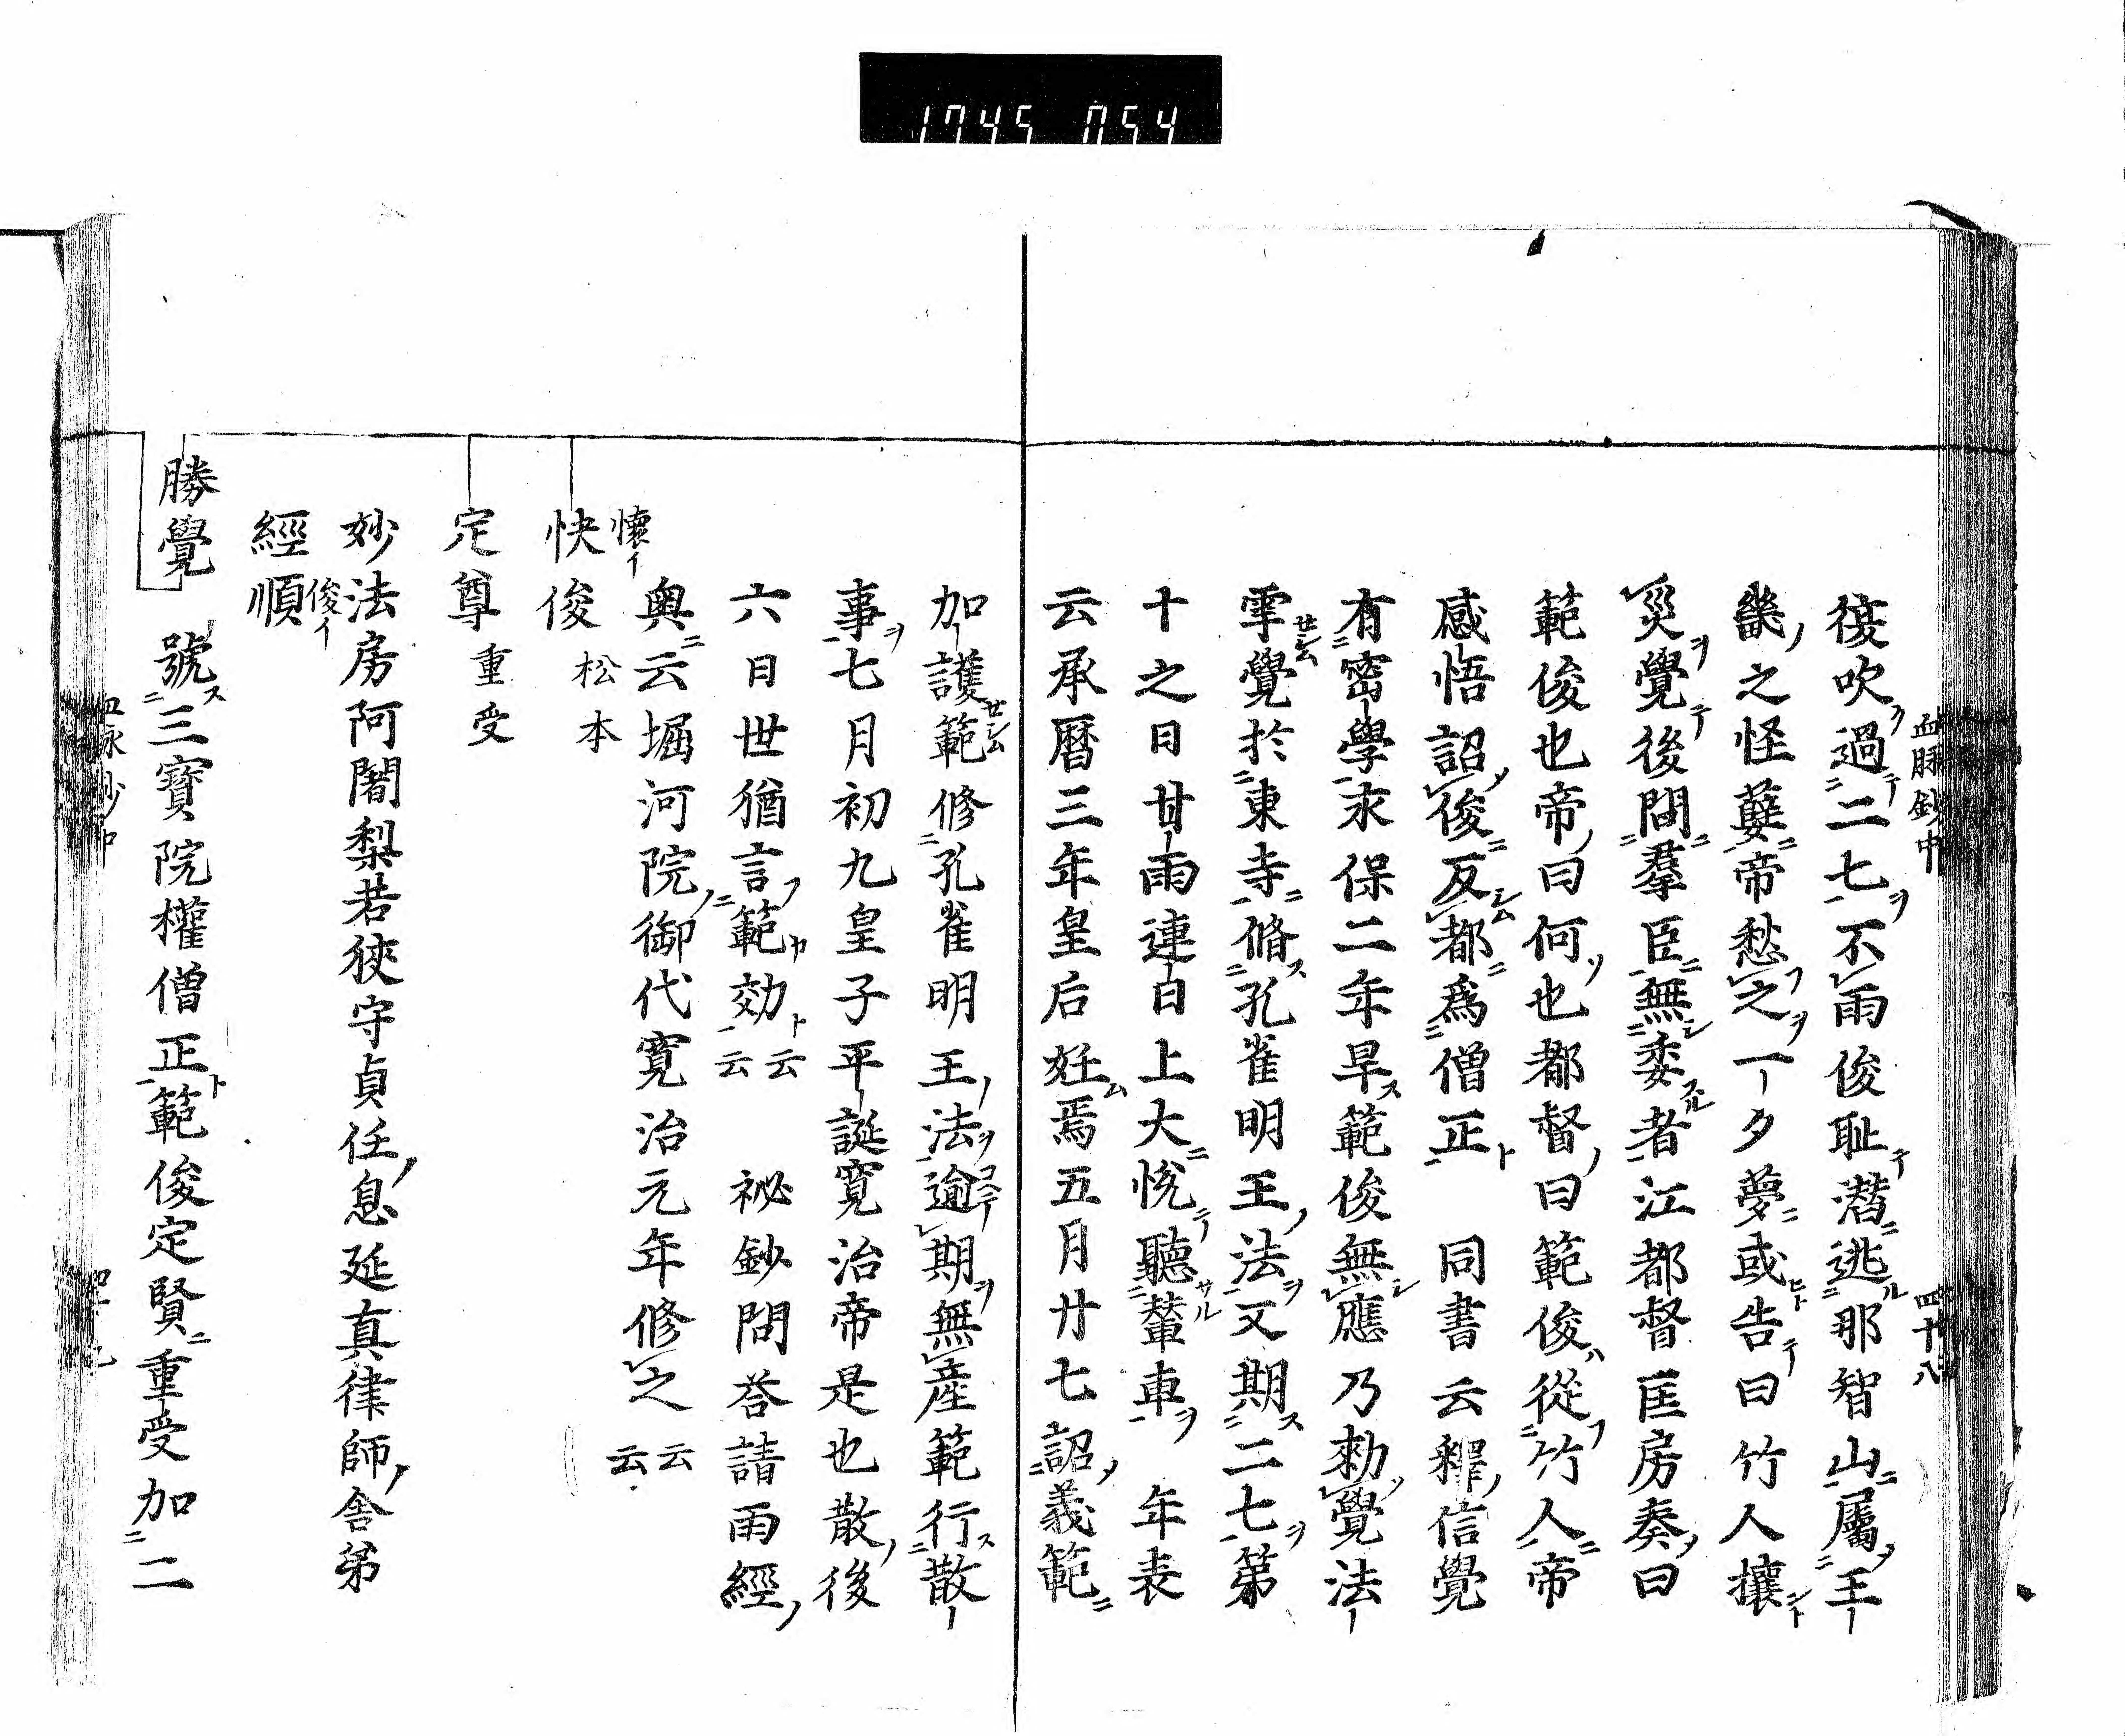 1745 054
血脉鈔中 四十八
復吹過二七不雨俊耻潛逃那智山屬王
畿之怪嬖帝愁之一夕夢或告曰竹人攘
災覺後問羣臣無委者江都督匡房奏曰
範俊也帝曰何也都督曰範俊從竹人帝
感悟詔俊反都爲僧正 同書云釋信覺
有密學永保二年旱範俊無應乃勅覺法
雩覺於東寺脩孔雀明王法又期二七第
十之日甘雨連日上大悅聽輦車 年表
云承曆三年皇后妊焉五月廿七詔義範
加護範修孔雀明王法逾期無產範行散
事七月初九皇子平誕寬治帝是也散後
六日世猶言範効云云 祕鈔問荅請雨經
奥云堀河院御代寬治元年修之云云
懷イ
快俊 松本
定尊 重受
妙法房阿闍梨若狹守貞任息延真律師舍弟
俊イ
經順
勝覺 號三寶院權僧正範俊定賢重受加二